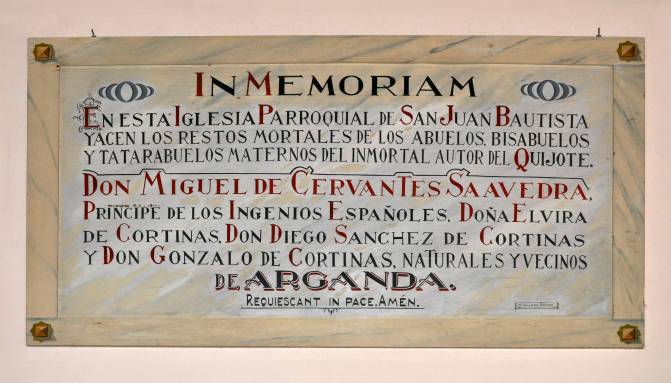 IN MEMORIAM
EN ESTA IGLESIA PARROQUIAL DE SAN JUAN BAUTISTA
YACEN LOS RESTOS MORTALES DE LOS ABUELOS, BISABUELOS
Y TATARABUELOS MATERNOS DEL INMORTAL AUTOR DEL QUIJOTE.
DON MIGUEL DE CERVANTES SAAVEDRA,
PRÍNCIPE DE LOS INGENIOS ESPAÑOLES, DOÑA ELVIRA
DE CORTINAS, DON DIEGO SANCHEZ DE CORTINAS
Y DON GONZALO DE CORTINAS, NATURALES Y VECINOS
DE ARGANDA.
REQUIESCANT IN PACE. AMÉN.